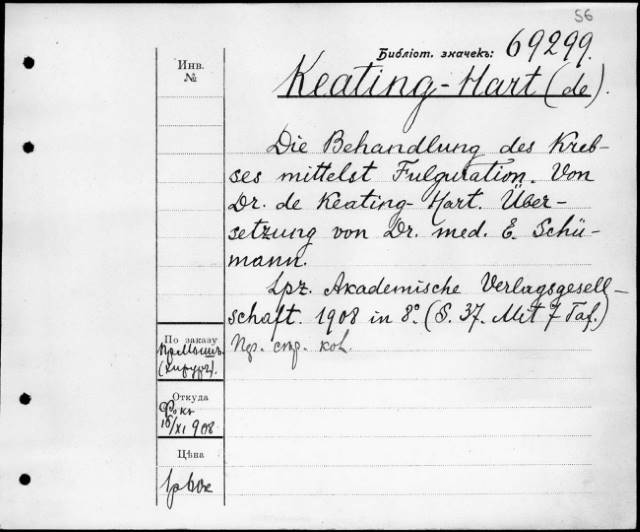 56
Библіот. значекъ: 69299.
Инв.
№
Keating-Hart (de).
Die Behandlung des Kreb-
ses mittelst Fulguration. Von
Dr. de Keating-Hart. Über-
setzung von Dr. med. E. Schü-
mann.
Lpz. Akademische Verlagsgesell-
schaft. 1908 in 8°. (S. 37. Mit 7 Taf.)
По заказу
(хирург).
Откуда
/XI 908
Цѣна